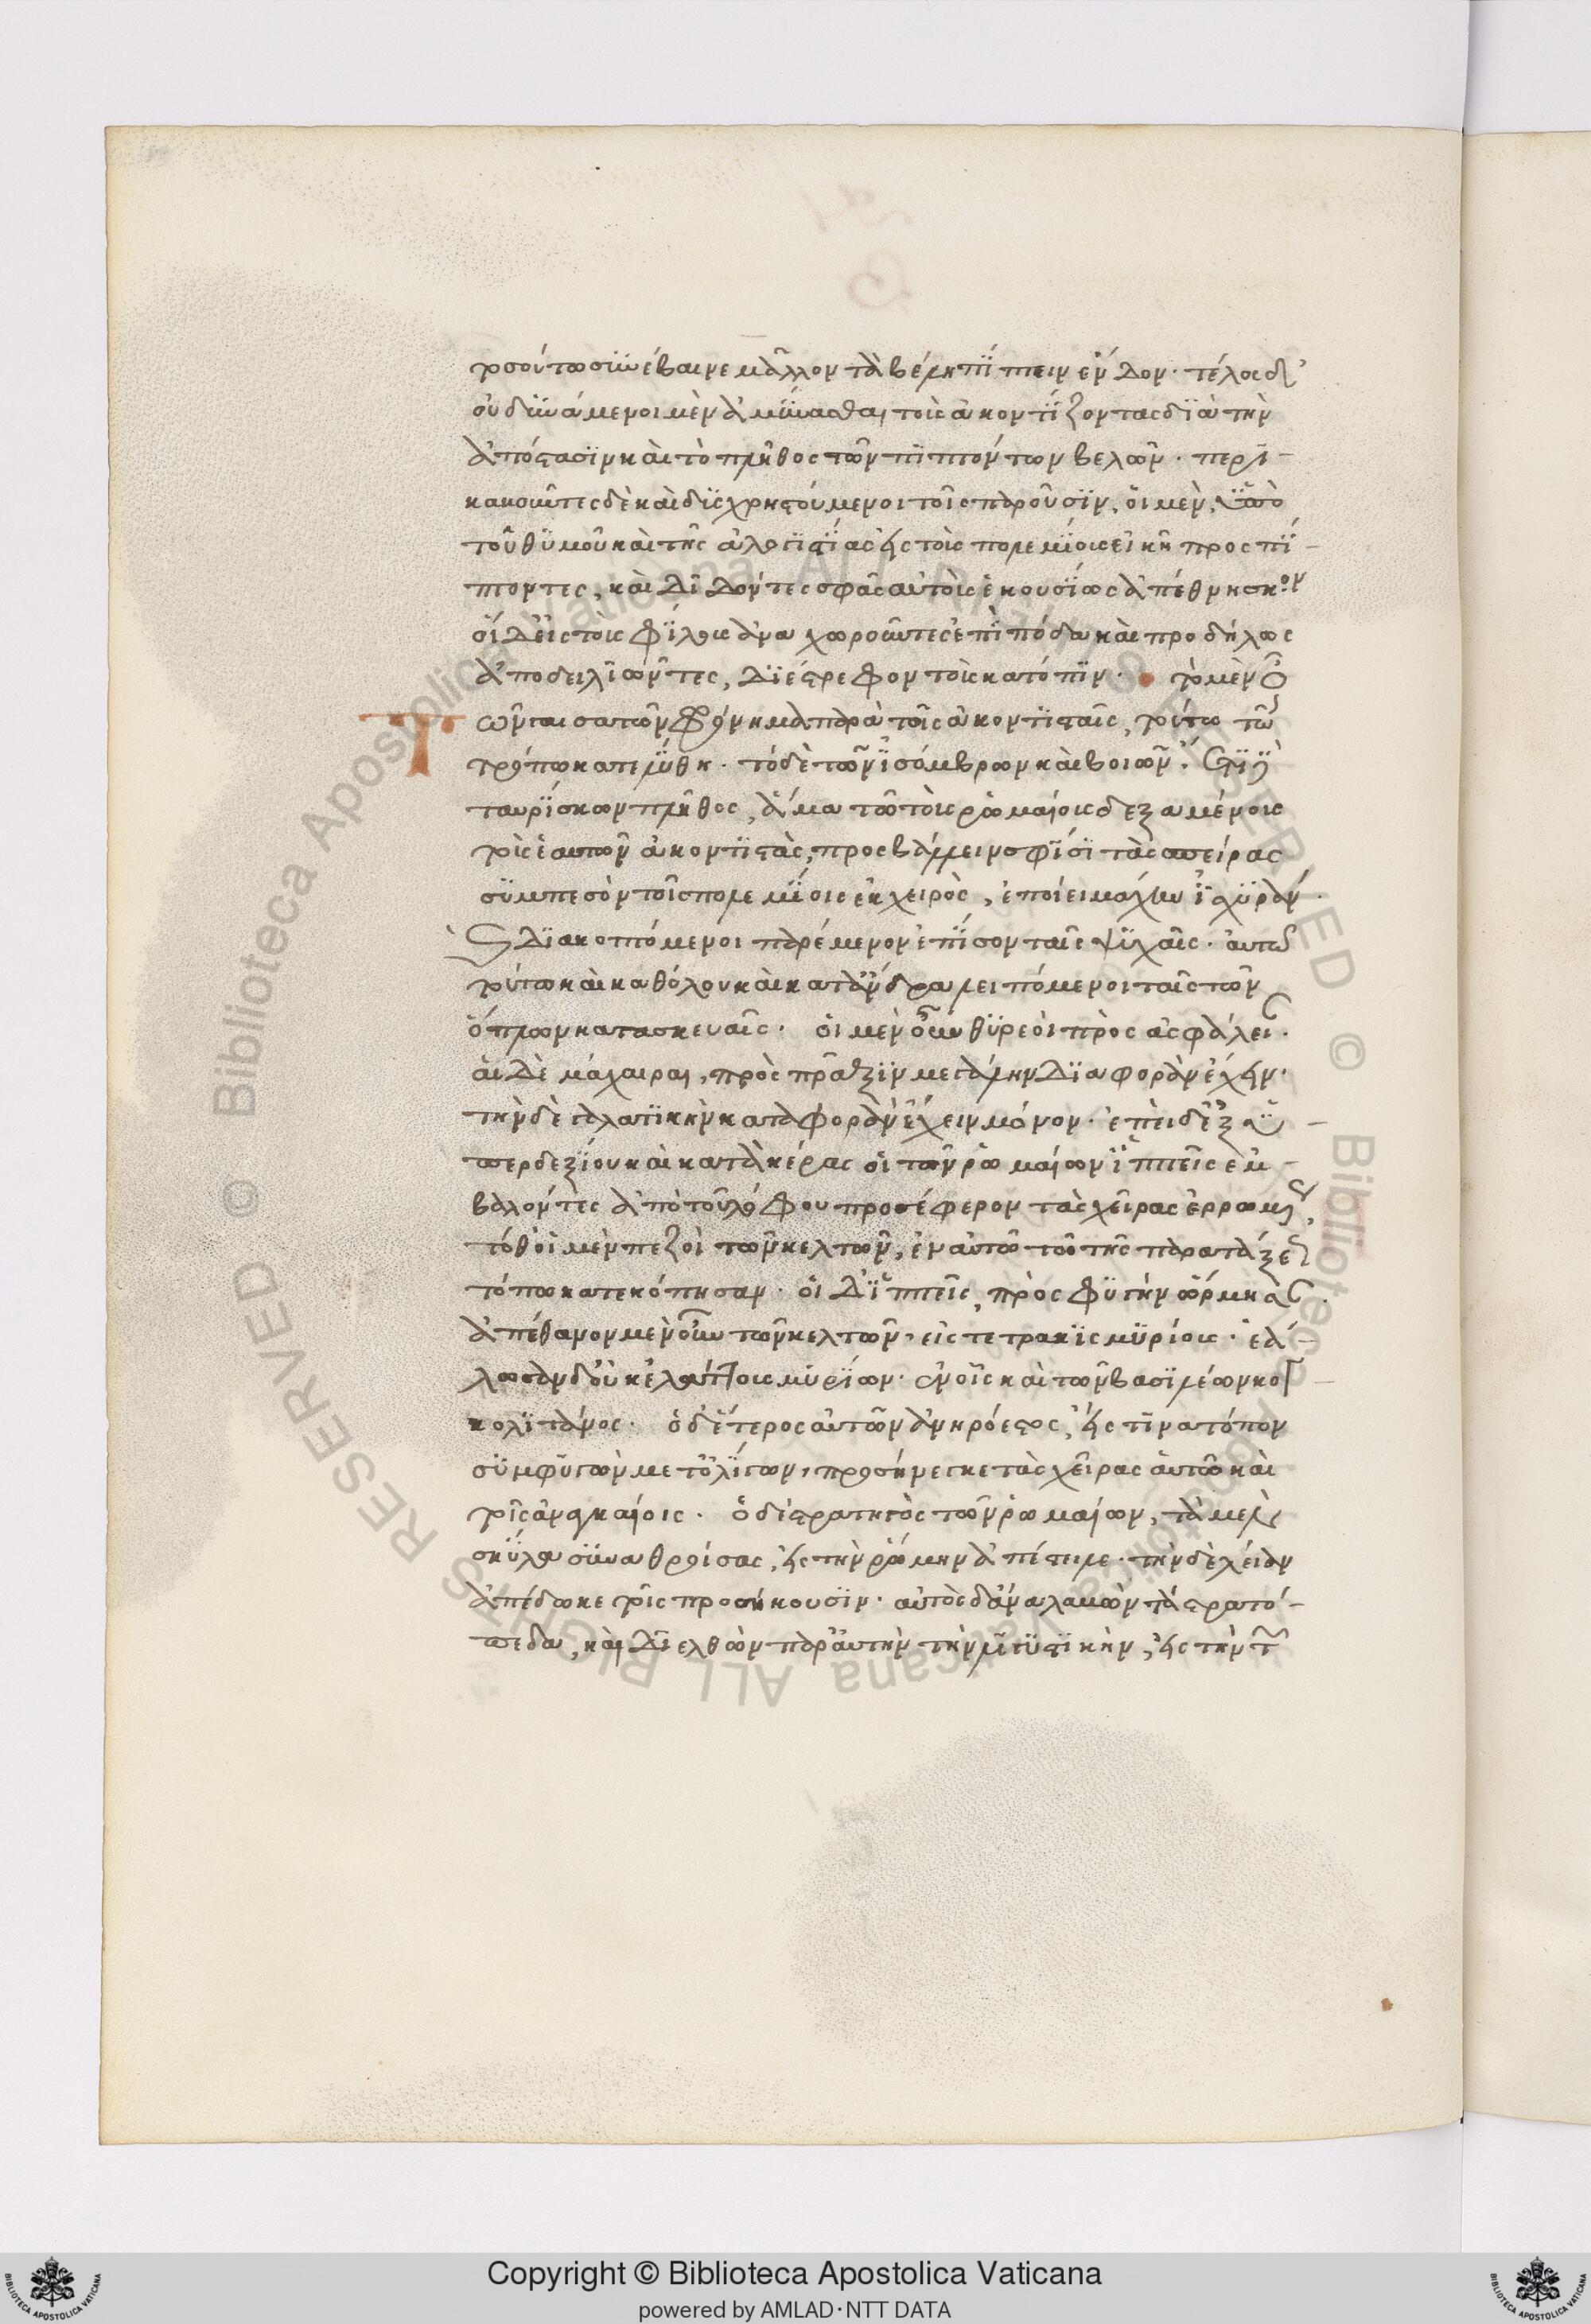 τοσούτω συνέβαινε μᾶλλον τὰ βέλη πίπτειν ἔνδον· τέλος δ'
οὐ δυνάμενοι μὲν ἀμύνασθαι τοὺς ἀκοντίζοντας διὰ τὴν
ἀπόστασιν καὶ τὸ πλῆθος τῶν πιπτόντων βελῶν· περι-
κακοῦντες δὲ καὶ δυσχρηστούμενοι τοῖς παροῦσιν, οἱ μὲν, ὑπὸ
τοῦ θυμοῦ καὶ τῆς ἀλογιστίας εἰς τοὺς πολεμίους εἰκῆ προσπί-
πτοντες, καὶ διδόντες σφᾶς αὐτοὺς ἑκουσίως ἀπέθνησκον
οἱ δ' εἰς τοὺς φίλους ἀναχωροῦντες ἐπὶ πόδα καὶ προδήλως
ἀποδειλιῶντες, διέστρεφον τοὺς κατόπιν· τὸ μὲν οὖν
τῶν γαισατῶν φρόνημα παρὰ τοῖς ἀκοντισταῖς, τούτω τῶ
τρόπω κατελύθη· τὸ δὲ τῶν ἰσόμβρων καὶ βοιῶν· ἔτι
ταυρίσκων πλῆθος, ἅμα τῶ τοὺς ρωμαίους δεξαμένους
τοὺς ἑαυτῶν ἀκοντιστὰς, προσβάλλειν σφίσι τὰς σπείρας
συμπεσὸν τοῖς πολεμίοις ἐκ χειρὸς, ἐποίει μάχην ἰσχυράν·
διακοπτόμενοι παρέμενον ἐπίσον ταῖς ψυχαῖς· αὐτῶ
τούτω καὶ καθόλου καὶ κατ' ἄνδρα λειπόμενοι ταῖς τῶν
ὅπλων κατασκευαῖς· οἱ μὲν οὖν θυρεοὶ πρὸς ἀσφάλειαν·
αἱ δὲ μάχαιραι, πρὸς πρᾶξιν μεγάλην διαφορὰν ἔχειν·
τὴν δὲ γαλατικὴν καταφορὰν ἔχειν μόνον· ἐπεὶ δ' ἐξ ὑ-
περδεξίου καὶ κατὰ κέρας οἱ τῶν ρωμαίων ἱππεῖς ἐμ-
βαλόντες ἀπὸ τοῦ λόφου προσέφερον τὰς χεῖρας ἐρρωμένως,
τόθ' οἱ μὲν πεζοὶ τῶν κελτῶν, ἐν αὐτῶ τῶ τῆς παρατάξεως
τόπω κατεκόπησαν· οἱ δ' ἱππεῖς, πρὸς φυγὴν ὥρμησαν·
ἀπέθανον μὲν οὖν τῶν κελτῶν, εἰς τετρακισμυρίους· ἑά-
λωσαν δ' οὐκ ἐλάττους μυρίων· ἐν οἷς καὶ τῶν βασιλέων κογ-
κολιτάνος· ὁ δ' ἕτερος αὐτῶν ἀνηρόεστος, εἴς τινα τόπον
συμφυγὼν μετ' ὀλίγων, προσήνεγκε τὰς χεῖρας αὑτῶ καὶ
τοῖς ἀναγκαίοις· ὁ δὲ στρατηγὸς τῶν ρωμαίων, τὰ μὲν
σκῦλα συναθροίσας, εἰς τὴν ρώμην ἀπέστειλε· τὴν δὲ λείαν
ἀπέδωκε τοῖς προσήκουσιν· αὐτὸς δ' ἀναλαβὼν τὰ στρατό-
πεδα, καὶ διελθὼν παρ' αὐτὴν τὴν λιγυστικὴν, εἰς τὴν τῶν